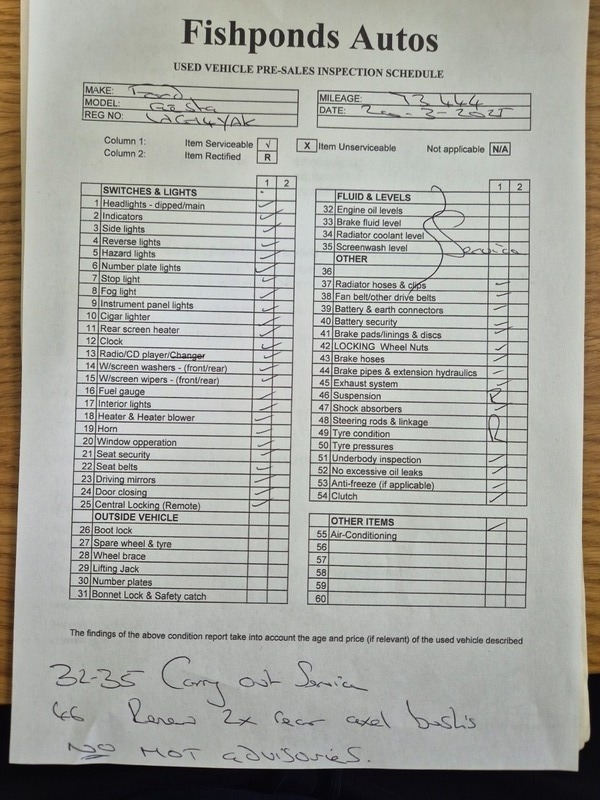 Fishponds Autos
USED VEHICLE PRE-SALES INSPECTION SCHEDULE
MAKE: Ford
MODEL: Fiesta
REG NO:
MILEAGE: 73 444
DATE: 20-3-2025
Column 1: Item Serviceable √ X Item Unserviceable Not applicable N/A
Column 2: Item Rectified R
1 2
SWITCHES & LIGHTS
1 Headlights - dipped/main
2 Indicators
3 Side lights
4 Reverse lights
5 Hazard lights
6 Number plate lights
7 Stop light
8 Fog light
9 Instrument panel lights
10 Cigar lighter
11 Rear screen heater
12 Clock
13 Radio/CD player/Changer
14 W/screen washers - (front/rear)
15 W/screen wipers - (front/rear)
16 Fuel gauge
17 Interior lights
18 Heater & Heater blower
19 Horn
20 Window opperation
21 Seat security
22 Seat belts
23 Driving mirrors
24 Door closing
25 Central Locking (Remote)
OUTSIDE VEHICLE
26 Boot lock
27 Spare wheel & tyre
28 Wheel brace
29 Lifting Jack
30 Number plates
31 Bonnet Lock & Safety catch
1 2
FLUID & LEVELS
32 Engine oil levels
33 Brake fluid level
34 Radiator coolant level
35 Screenwash level
Service
OTHER
36
37 Radiator hoses & clips
38 Fan belt/other drive belts
39 Battery & earth connectors
40 Battery security
41 Brake pads/linings & discs
42 LOCKING Wheel Nuts
43 Brake hoses
44 Brake pipes & extension hydraulics
45 Exhaust system
46 Suspension R
47 Shock absorbers
48 Steering rods & linkage
49 Tyre condition R
50 Tyre pressures
51 Underbody inspection
52 No excessive oil leaks
53 Anti-freeze (if applicable)
54 Clutch
OTHER ITEMS
55 Air-Conditioning
56
57
58
59
60
The findings of the above condition report take into account the age and price (if relevant) of the used vehicle described
32-35 Carry out Service
46 Renew 2x rear axel bushs
NO MOT advisories.